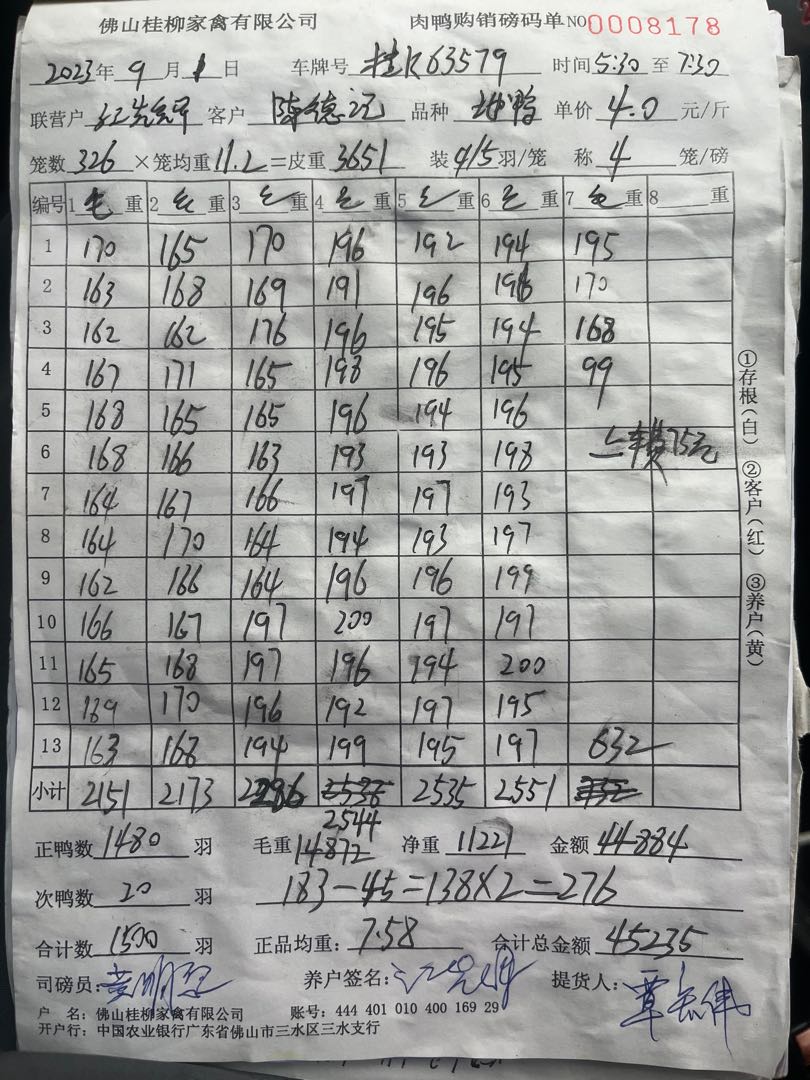 佛山桂柳家禽有限公司 肉鸭购销磅码单 NO 0008178
2023年 9 月 1 日 车牌号 桂K63579 时间5:30 至 7:30
联营户 江先军 客户 陈德记 品种 地鸭 单价 4.0 元/斤
笼数 326 ×笼均重 11.2 =皮重 3651 装 4/5 羽/笼 称 4 笼/磅
编号 1 毛 重 2 毛 重 3 毛 重 4 毛 重 5 毛 重 6 毛 重 7 毛 重 8 重
1 170 165 170 196 192 194 195
2 163 168 169 191 196 196 170
3 162 162 176 196 195 194 168
4 167 171 165 193 196 195 99
5 168 165 165 196 194 196
6 168 166 163 193 193 198 上车费75元
7 164 167 166 197 197 193
8 164 170 164 194 193 197
9 162 166 164 196 196 199
10 166 167 197 200 197 197
11 165 168 197 196 194 200
12 169 170 196 192 197 195
13 163 168 194 199 195 197 632
小计 2151 2173 2286 2535 2551
2544
正鸭数 1480 羽 毛重 14872 净重 11221 金额 44884
次鸭数 20 羽 183-45=138×2=276
合计数 1500 羽 正品均重: 7.58 合计总金额 45235
司磅员: 养户签名: 提货人:
户 名: 佛山桂柳家禽有限公司 账号: 444 401 010 400 169 29
开户行: 中国农业银行广东省佛山市三水区三水支行
①存根(白) ②客户(红) ③养户(黄)